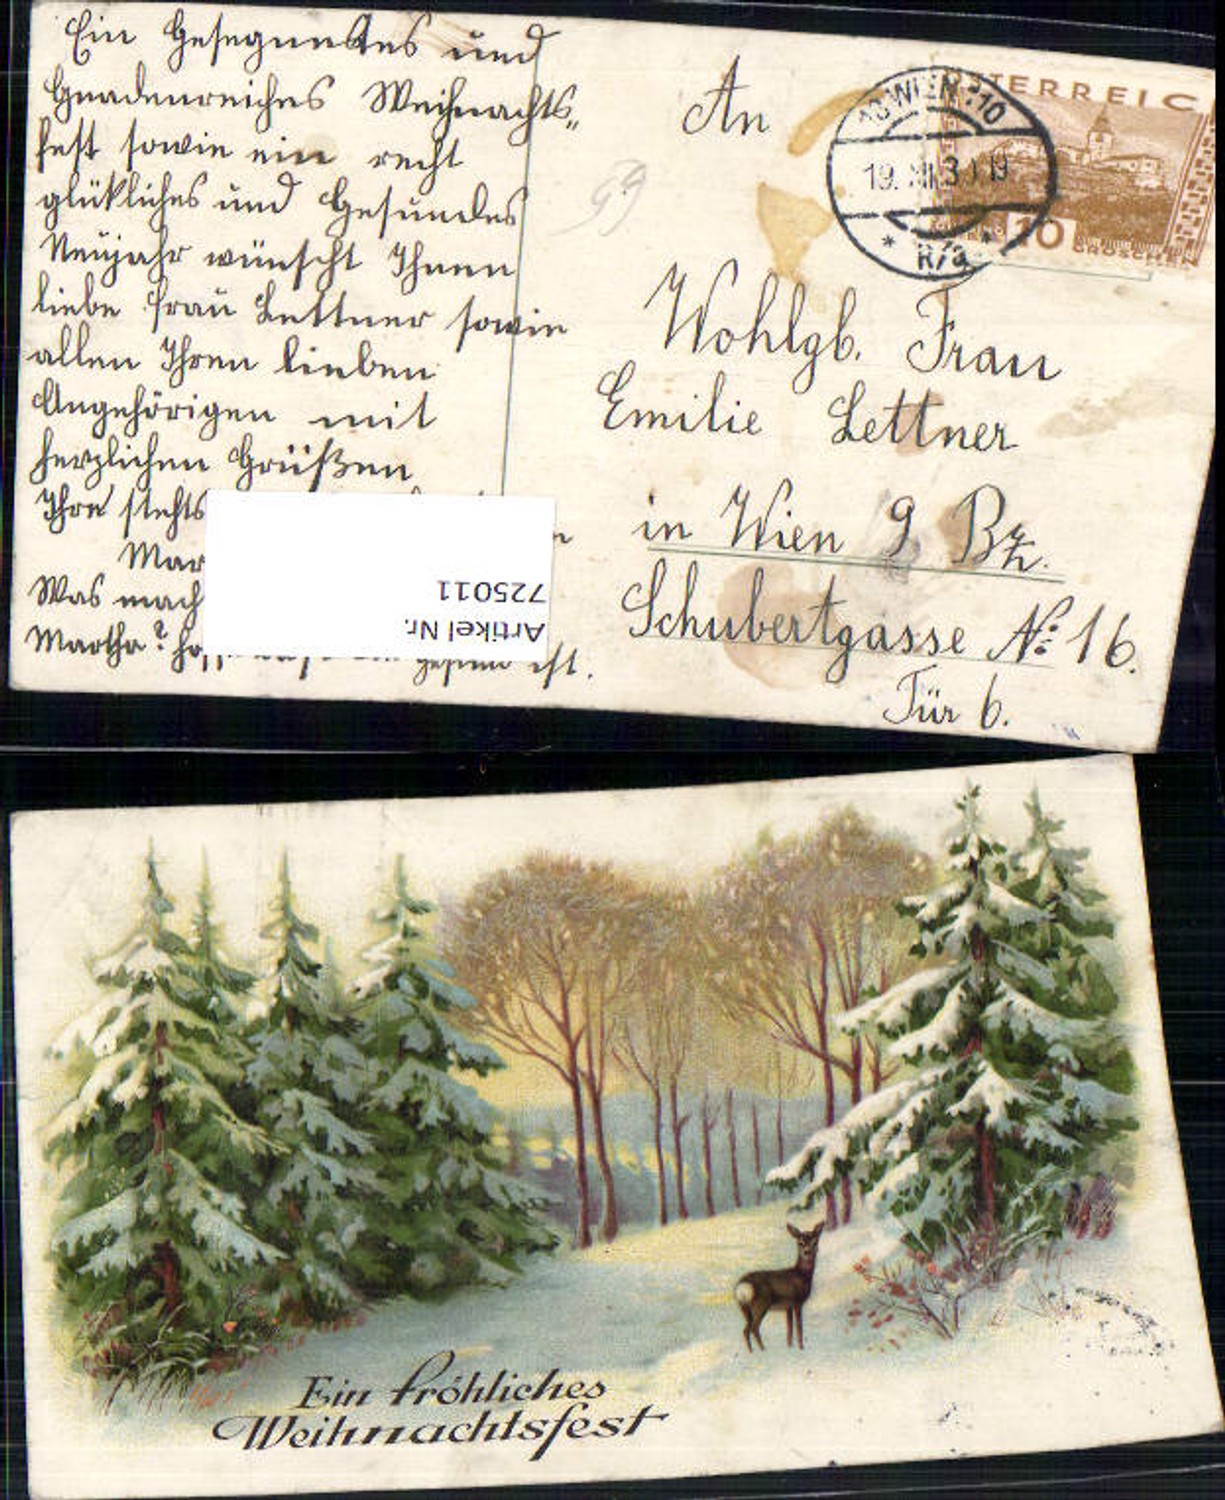 Ein Gesegnetes und
Gnadenreiches Weihnachts„
fest sowie ein recht
glückliches und Gesundes
Neujahr wünscht Ihnen
liebe Frau Lettner sowie
allen Ihren lieben
Angehörigen mit
herzlichen Grüßen
Ihre stehts
Mar
Was mach
Martha? ist.
Artikel Nr.
725011
An
ÖSTERREICH
WIEN 110
19. XII. 30 19
* R/a *
10
GROSCHEN
59
Wohlgb. Frau
Emilie Lettner
in Wien 9 Bz.
Schubertgasse No: 16.
Tür 6.
Ein fröhliches
Weihnachtsfest